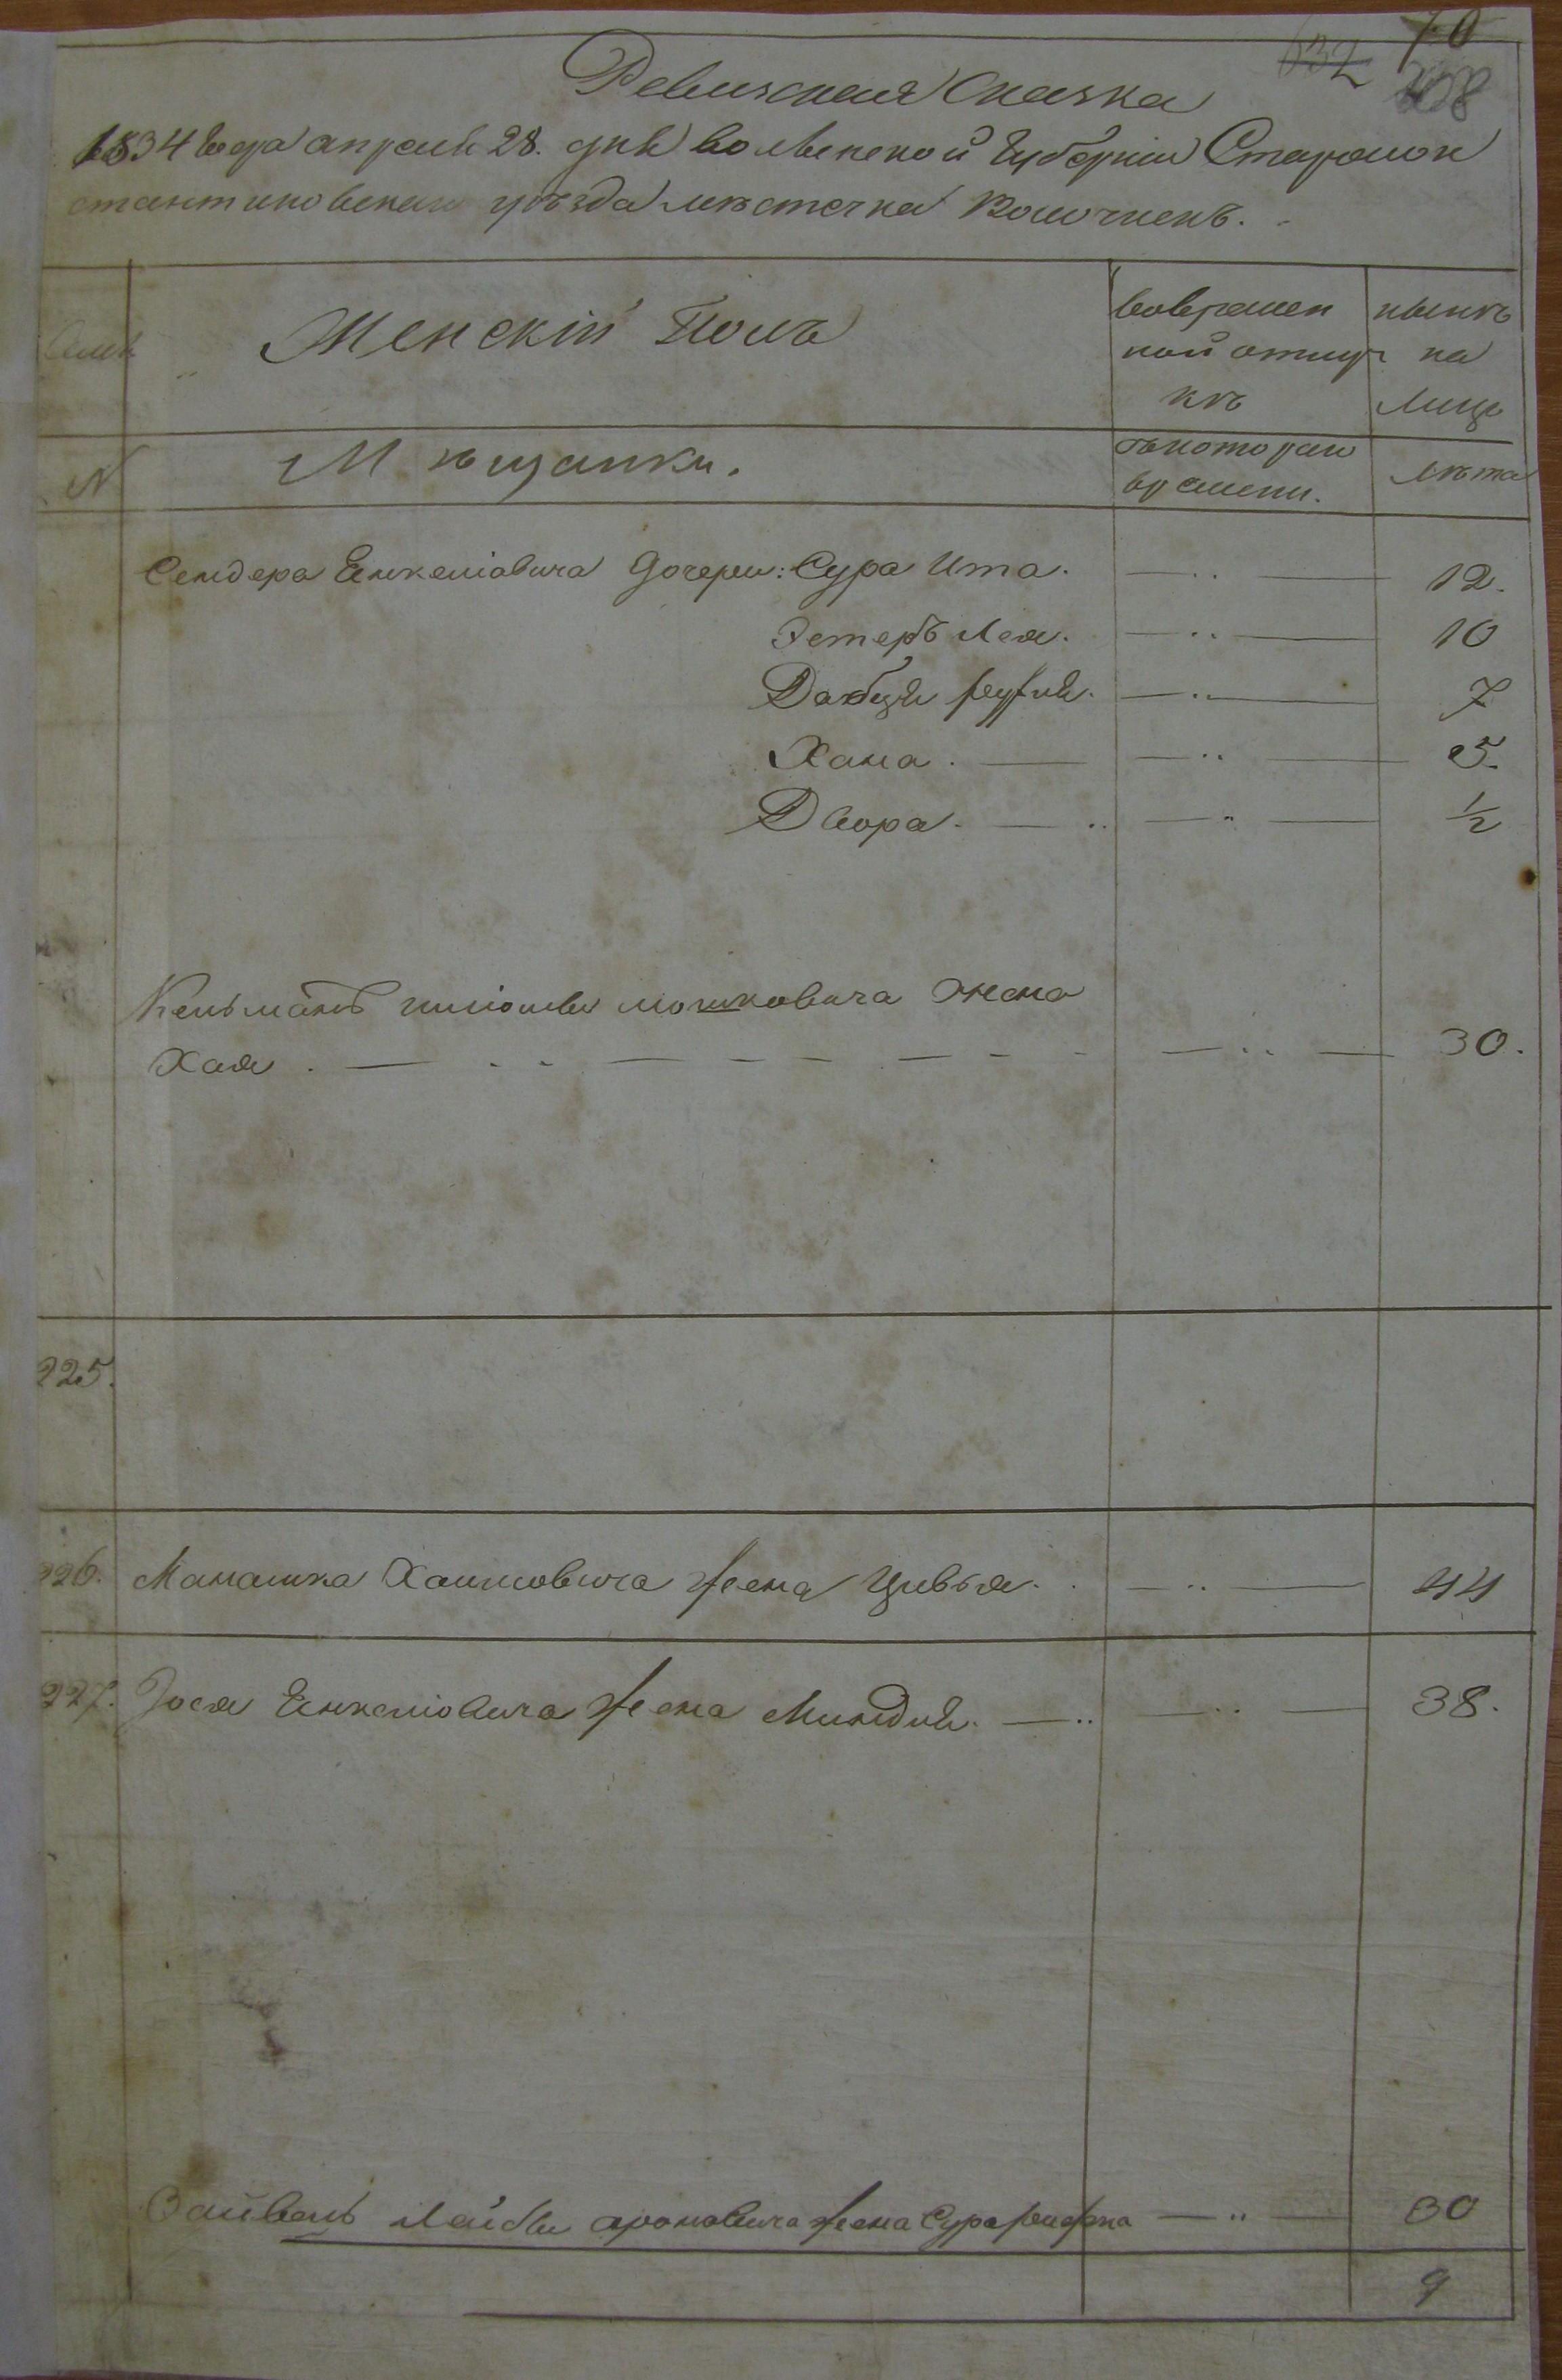 632 70
208
Ревизская Сказка
1834 года апреля 28. дня волынской Губернии Старокон
стантиновскаго уѣзда мѣстечка Волочискъ.
Семья
Женскій Полъ
вовремен
ной отлуч
кѣ
нынѣ
на
лицо
N
Мѣщанки.
съ котораго
времени.
лѣта
Сендера Енкеліовича дочери: Сура Ита. 12.
Эстеръ Лея. 10
Добця 7
Хана. 5.
Двора. 1/2
Кельманъ мошковича жена
Хая. 30.
225.
226. Манашка Хаимовича жена Цивья. 44
227. Іося Енкеліовича жена Миндля. 38.
Зайвель Лейбы ароновича жена Сура 30
9